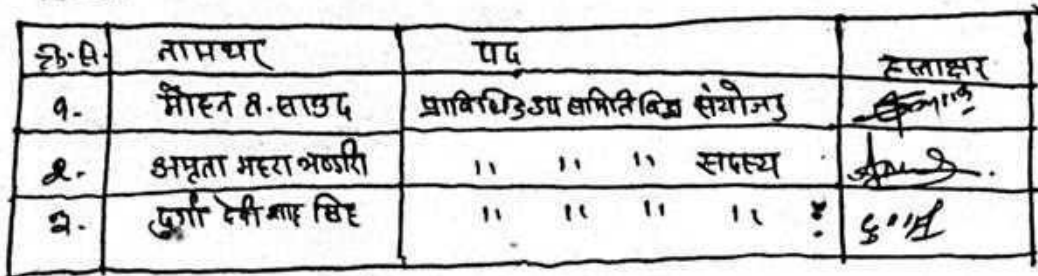 क्र.सं. नामथर पद हस्ताक्षर
१. मोहन ब. साउद प्राविधिक उप समिति संयोजक
२. अमृता महरा भण्डारी " " " सदस्य
३. दुर्गा देवी शाह सिंह " " " "